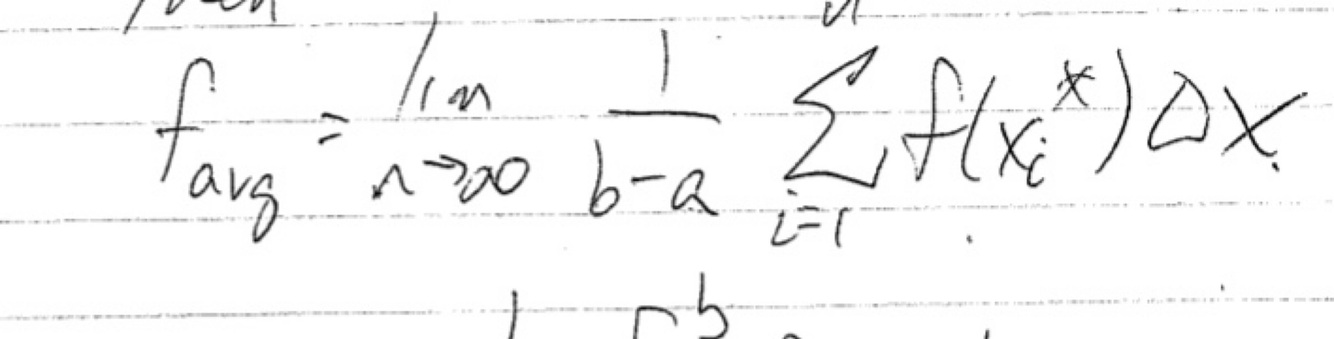 f_avg = lim_{n→∞} 1/(b-a) Σ_{i=1}^{n} f(x_i^*) Δx.